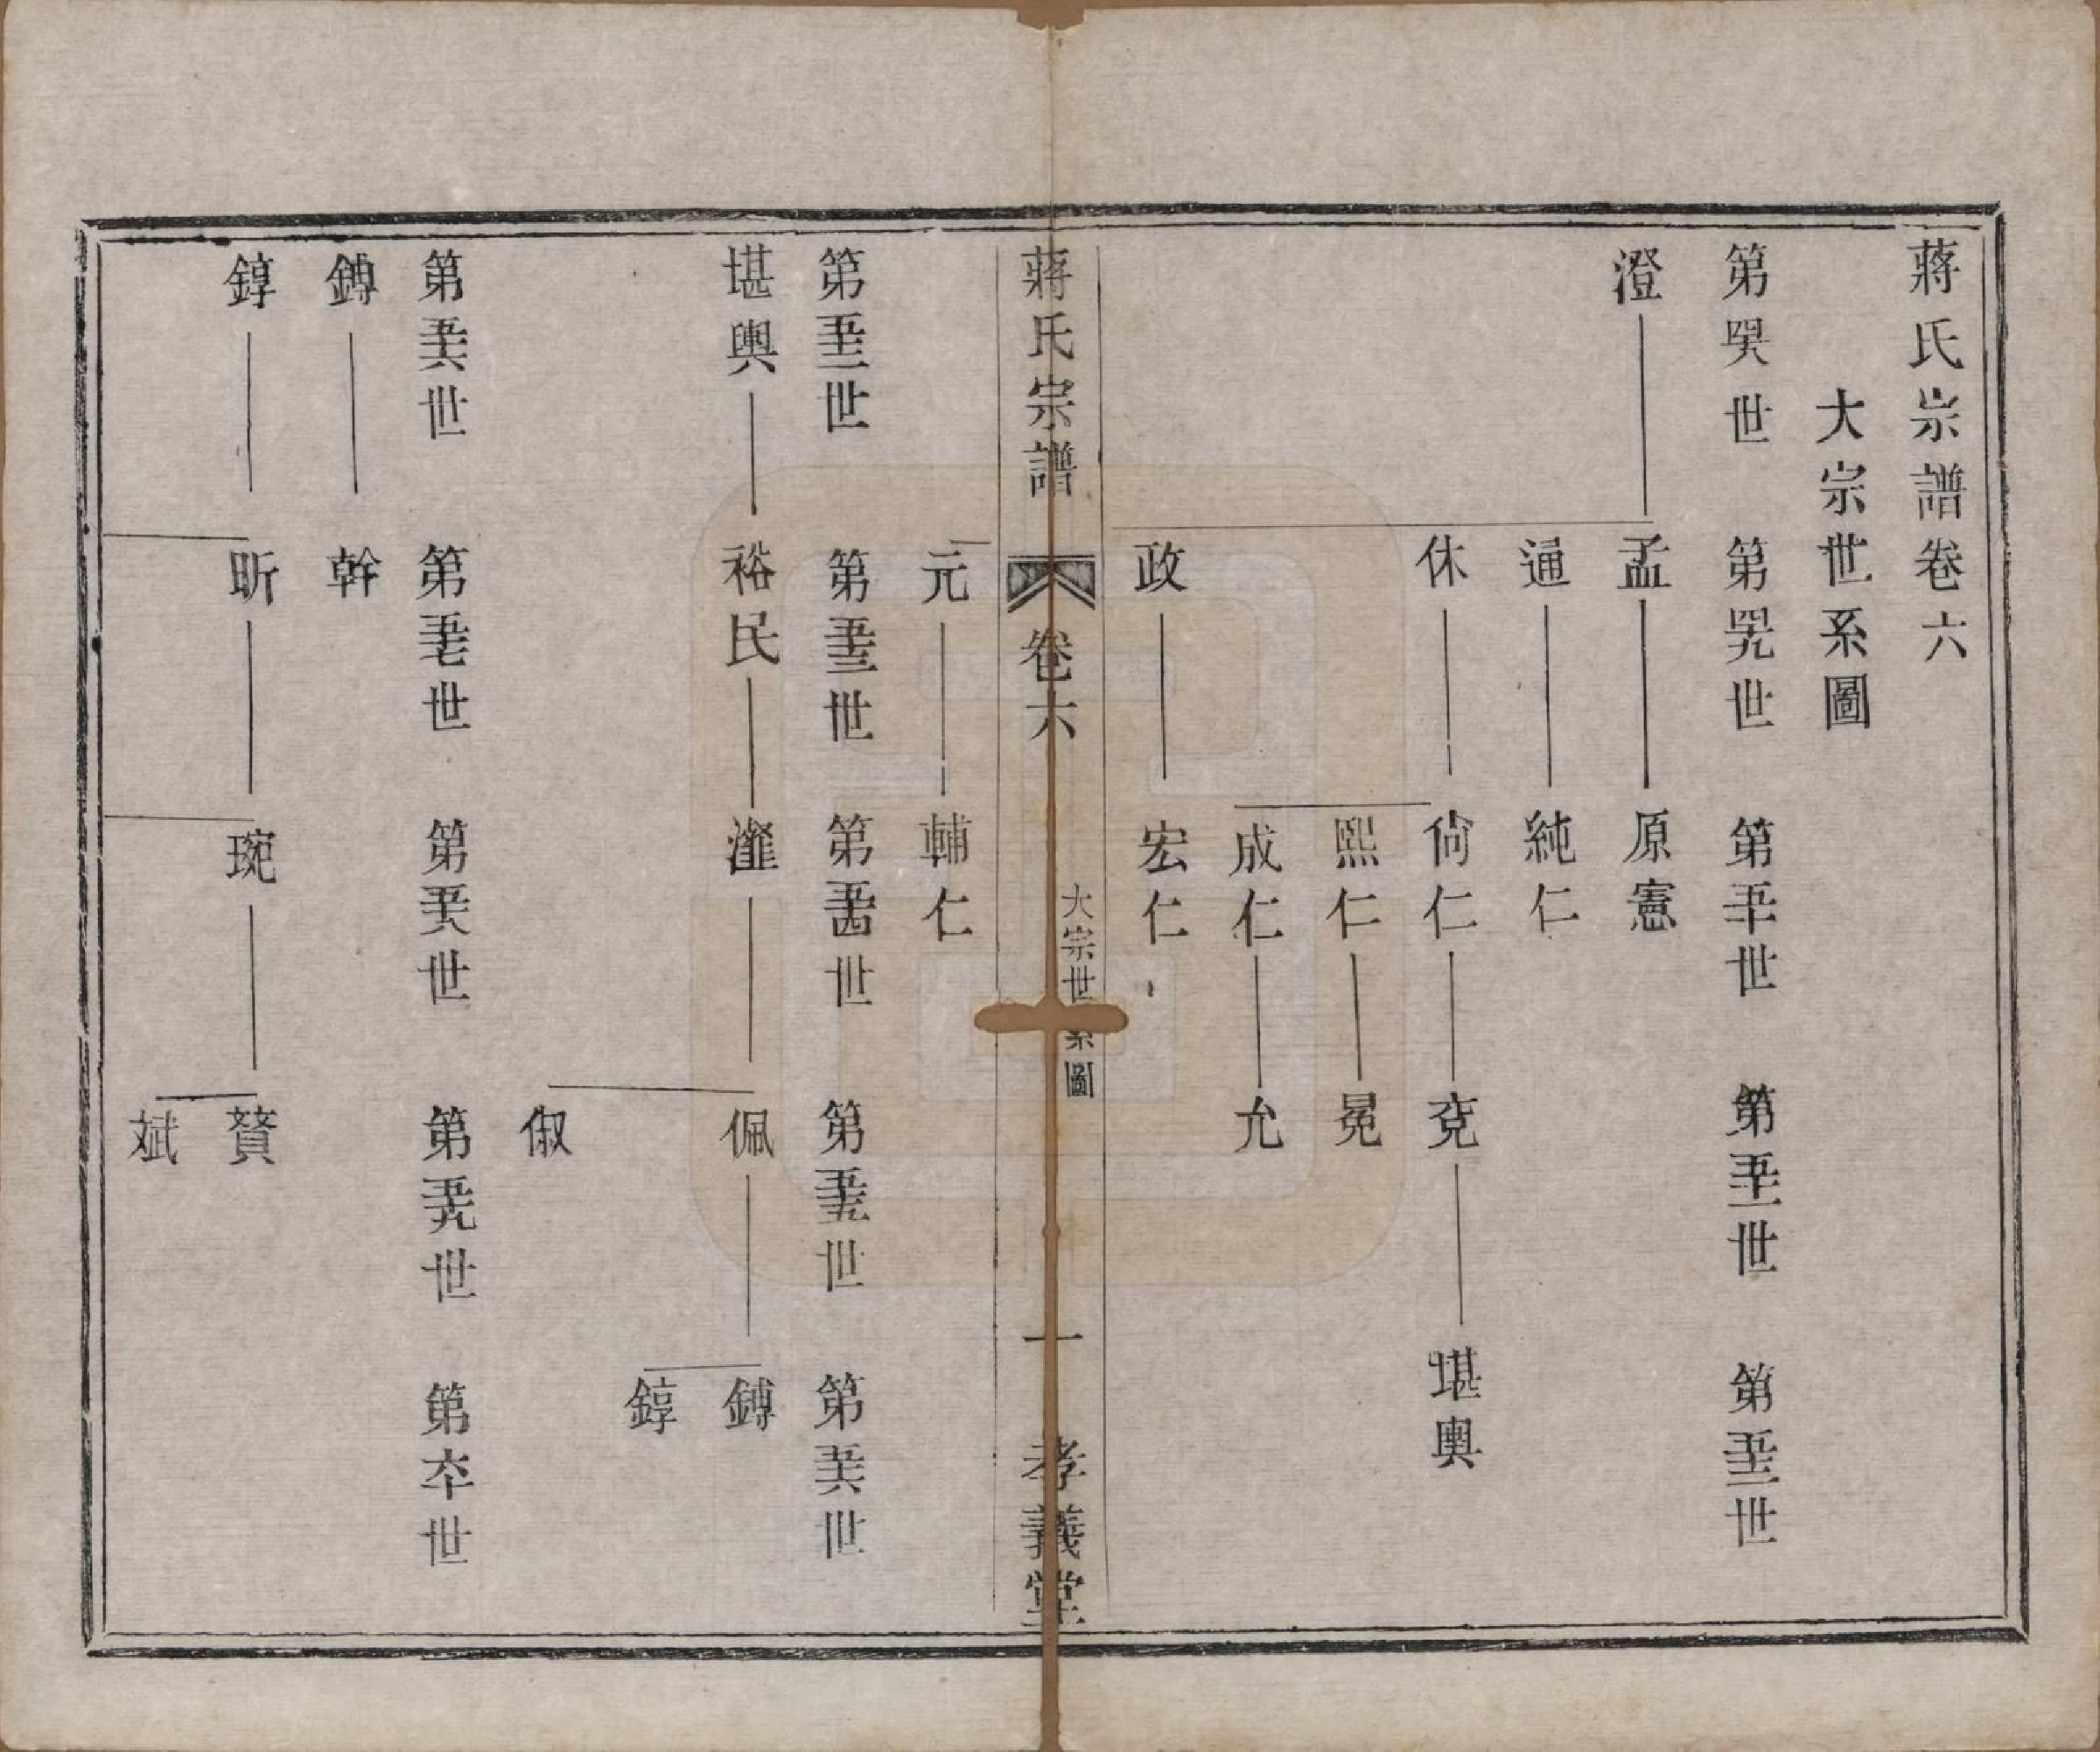 蔣氏宗譜卷六
大宗世系圖
第四八世　第四九世　第五十世　第五十一世　第五十二世
澄　孟　原憲
通　純仁
休　尙仁　兗　堪輿
熙仁　冕
成仁　允
政　宏仁
蔣氏宗譜　卷六　大宗世系圖　一　孝義堂
元　輔仁
第五十二世　第五十三世　第五十四世　第五十五世　第五十六世
堪輿　裕民　漼　佩　鎛
錞
俶
第五十六世　第五十七世　第五十八世　第五十九世　第六十世
鎛　幹
錞　昕　琬　贇
斌